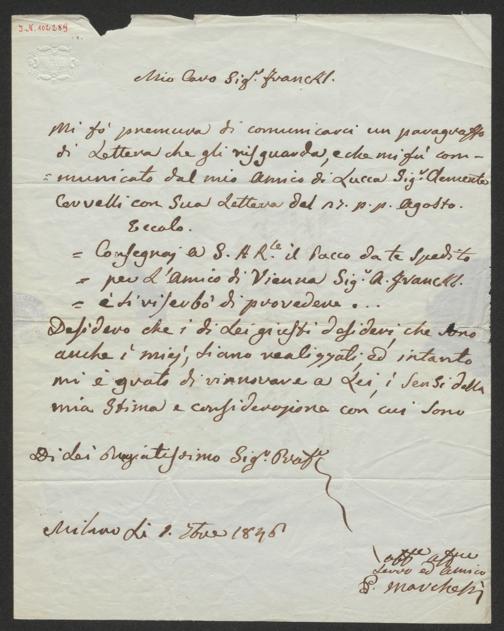 I.N. 102289
Mio Caro Sig.r Franckl.
Mi fò premura di comunicarci un paragraffo
di Lettera che gli risguarda, e che mi fù com-
=municato dal mio Amico di Lucca Sig.r Clemente
Corvelli con Sua Lettera del 27. p. p. Agosto.
Eccolo.
= Consegnaj a S. A R.le il Pacco da te Spedito
= per L'Amico di Vienna Sig.r A. Franckl.
= e si riserbò di provedere ...
Desidero che i di Lei giusti desideri, che sono
anche i miej, siano realizzati, ed intanto
mi è grato di rinnovare a Lei, i sensi della
mia Stima e considerazione con cui sono
Di Lei Sig.r
Milano Li 1846
Servo ed Amico
Marchesi